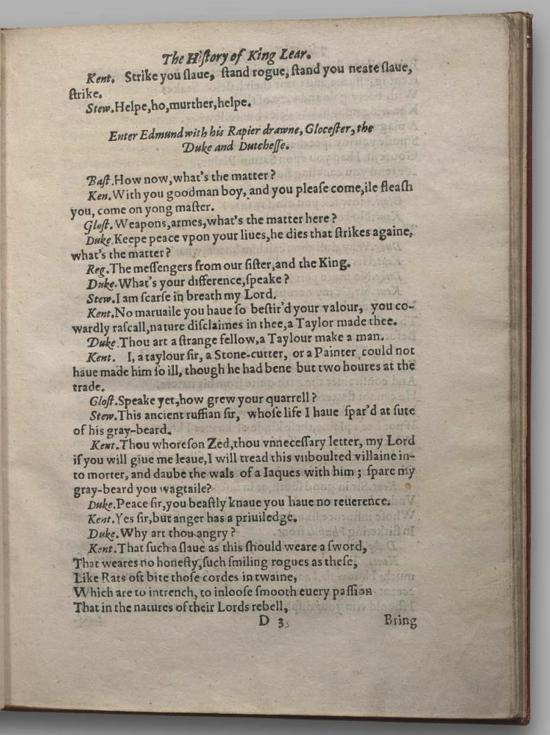 The Hiſtory of King Lear.
Kent. Strike you ſlaue, ſtand rogue, ſtand you neate ſlaue,
ſtrike.
Stew. Helpe, ho, murther, helpe.
Enter Edmund with his Rapier drawne, Gloceſter, the
Duke and Dutcheſſe.
Baſt. How now, what's the matter?
Ken. With you goodman boy, and you pleaſe come, ile fleaſh
you, come on yong maſter.
Gloſt. Weapons, armes, what's the matter here?
Duke. Keepe peace vpon your liues, he dies that ſtrikes againe,
what's the matter?
Reg. The meſſengers from our ſiſter, and the King.
Duke. What's your difference, ſpeake?
Stew. I am ſcarſe in breath my Lord.
Kent. No maruaile you haue ſo beſtir'd your valour, you co-
wardly raſcall, nature diſclaimes in thee, a Taylor made thee.
Duke. Thou art a ſtrange fellow, a Taylour make a man.
Kent. I, a taylour ſir, a Stone-cutter, or a Painter could not
haue made him ſo ill, though he had bene but two houres at the
trade.
Gloſt. Speake yet, how grew your quarrell?
Stew. This ancient ruffian ſir, whoſe life I haue ſpar'd at ſute
of his gray-beard.
Kent. Thou whoreſon Zed, thou vnneceſſary letter, my Lord
if you will giue me leaue, I will tread this vnboulted villaine in-
to morter, and daube the wals of a Iaques with him; ſpare my
gray-beard you wagtaile?
Duke. Peace ſir, you beaſtly knaue you haue no reuerence.
Kent. Yes ſir, but anger has a priuiledge.
Duke. Why art thou angry?
Kent. That ſuch a ſlaue as this ſhould weare a ſword,
That weares no honeſty, ſuch ſmiling rogues as theſe,
Like Rats oft bite thoſe cordes in twaine,
Which are to intrench, to inlooſe ſmooth euery paſſion
That in the natures of their Lords rebell,
D 3 Bring